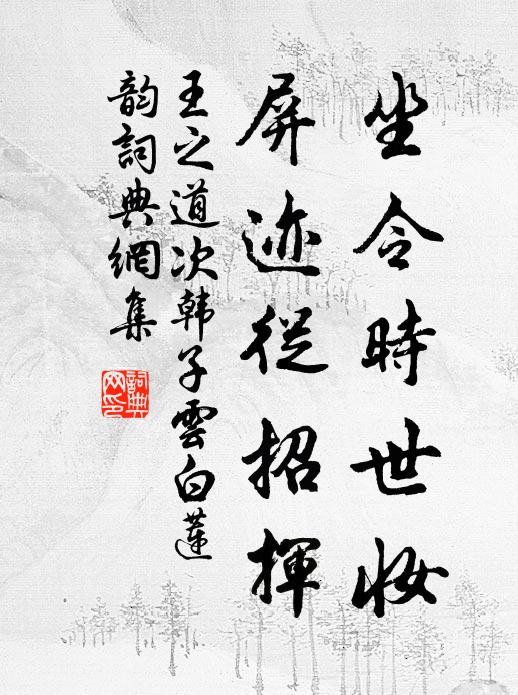 坐令時世妝
屏迹從招揮
王之道次韩子雲白蓮
韵詞典網集
詞典
网印